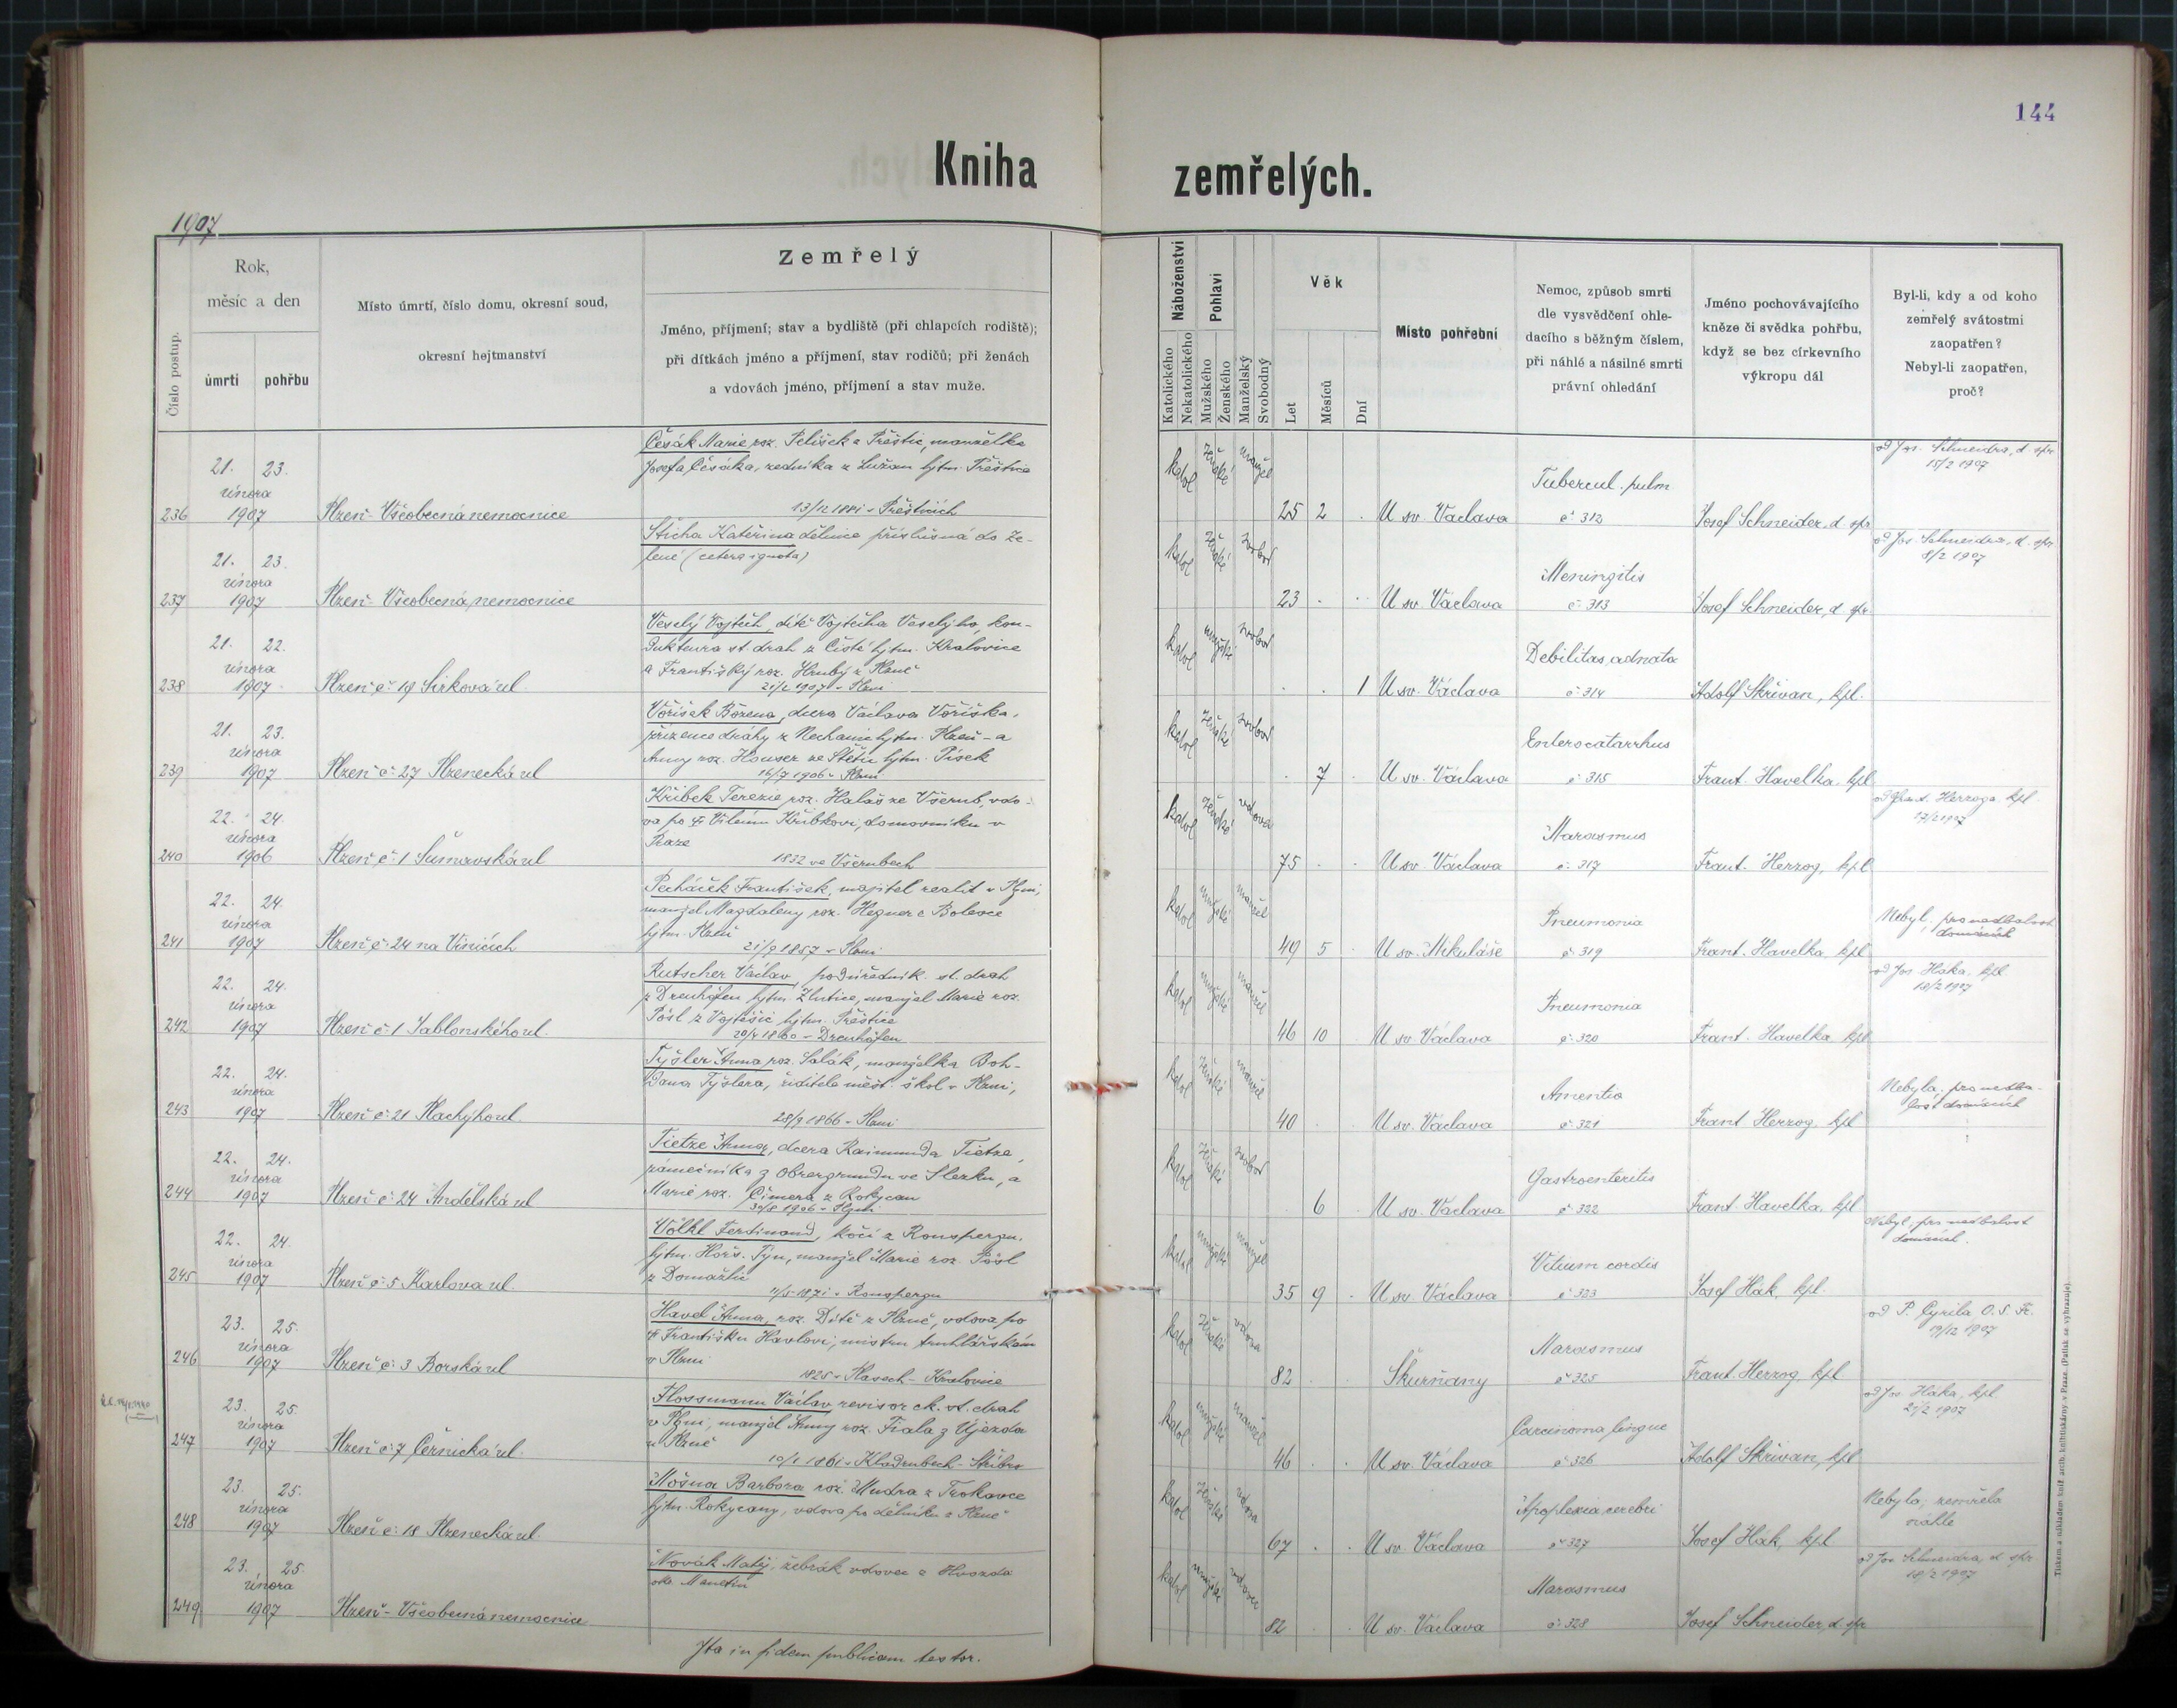 144
Kniha zemřelých.
1907
Číslo postup.
Rok,
měsíc a den
úmrtí
pohřbu
Místo úmrtí, číslo domu, okresní soud,
okresní hejtmanství
Zemřelý
Jméno, příjmení; stav a bydliště (při chlapcích rodiště);
při dítkách jméno a příjmení, stav rodičů; při ženách
a vdovách jméno, příjmení a stav muže.
Náboženství
Katolického
Nekatolického
Pohlaví
Mužského
Ženského
Manželský
Svobodný
Věk
Let
Měsíců
Dní
Místo pohřební
Nemoc, způsob smrti
dle vysvědčení ohle-
dacího s běžným číslem,
při náhlé a násilné smrti
právní ohledání
Jméno pochovávajícího
kněze či svědka pohřbu,
když se bez církevního
výkropu dál
Byl-li, kdy a od koho
zemřelý svátostmi
zaopatřen?
Nebyl-li zaopatřen,
proč?
236
21. 23.
února
1907
Plzeň - Všeobecná nemocnice
Česák Marie roz. Pelíšek z Přeštic, manželka
Josefa Česáka, zedníka z Lužan hjtm. Přeštice
13/12 1881 v Přešticích
katol ženské manžel
25 2 .
U sv. Václava
Tubercul. pulm.
č. 312
Josef Schneider, d. spr.
od Jos. Schneidra, d. spr.
15/2 1907
237
21. 23.
února
1907
Plzeň - Všeobecná nemocnice
Sticha Kateřina dělnice příslušná do Ze-
lené (cetera ignota)
katol ženské svobod
23 . .
U sv. Václava
Meningitis
č. 313
Josef Schneider, d. spr.
od Jos. Schneidra, d. spr.
8/2 1907
238
21. 22.
února
1907
Plzeň č. 19 Sirková ul.
Veselý Vojtěch, dítě Vojtěcha Veselýho, kon-
duktéra st. drah z Čisté hjtm. Kralovice
a Františky roz. Hrubý z Plzně
21/2 1907 v Plzni
katol mužské svobod
. . 1
U sv. Václava
Debilitas adnata
č. 314
Adolf Skřivan, kpl.
239
21. 23.
února
1907
Plzeň č. 27 Plzenecká ul
Voříšek Božena, dcera Václava Voříška,
přízence dráhy z Nechanic hjtm. Plzeň - a
Anny roz. Houser ze Štětic hjtm. Písek
16/7 1906 v Plzni
katol ženské svobod
. 7 .
U sv. Václava
Enterocatarrhus
č. 315
Frant. Havelka, kpl
240
22. 24.
února
1906
Plzeň č. 1 Šumavská ul
Kříbek Terezie roz. Halaš ze Všerub, vdo-
va po † Vilému Kříbkovi, domovníku v
Praze
1832 ve Všerubech
katol ženské vdova
75 . .
U sv. Václava
Marasmus
č. 317
Frant. Herzog, kpl
od Frant. Herzoga, kpl.
17/2 1907
241
22. 24.
února
1907
Plzeň č. 24 na Vinicích
Pecháček František, majitel realit v Plzni,
manžel Magdaleny roz. Hegner z Bolevce
hjtm. Plzeň
21/9 1857 v Plzni
katol mužské manžel
49 5 .
U sv. Mikuláše
Pneumonia
č. 319
Frant. Havelka, kpl
Nebyl, pro nedbalost
domácích
242
22. 24.
února
1907
Plzeň č. 1 Jablonského ul.
Rutscher Václav, podúředník st. drah
z Drenhöfen hjtm. Žlutice, manžel Marie roz.
Pösl z Vojtěšic hjtm. Přeštice
20/4 1860 v Drenhöfen
katol mužské manžel
46 10
U sv. Václava
Pneumonia
č. 320
Frant. Havelka kpl
od Jos. Háka, kpl
18/2 1907
243
22. 24.
února
1907
Plzeň č. 21 Plachýho ul.
Tyšler Anna roz. Salák, manželka Boh-
dana Tyšlera, ředitele měšť. škol v Plzni,
28/9 1866 v Plzni
katol ženské manžel
40 . .
U sv. Václava
Amentia
č. 321
Frant. Herzog, kpl
Nebyla, pro nedba-
lost domácích
244
22. 24.
února
1907
Plzeň č. 24 Andělská ul
Tietze Anna, dcera Raimunda Tietze,
zámečníka z Obergrundu ve Slezku, a
Marie roz. Čimera z Rokycan
30/8 1906 v Plzni
katol ženské svobod
6
U sv. Václava
Gastroenteritis
č. 322
Frant. Havelka, kpl
245
22. 24.
února
1907
Plzeň č. 5 Karlova ul.
Völkl Ferdinand, kočí z Ronspergu,
hjtm. Horš. Týn, manžel Marie roz. Pösl
z Domažlic
11/5 1871 v Ronspergu
katol mužské manžel
35 9 .
U sv. Václava
Vitium cordis
č. 323
Josef Hák, kpl.
Nebyl, pro nedbalost
domácích.
246
23. 25.
února
1907
Plzeň č. 3 Borská ul
Havel Anna, roz. Dítě z Plzně, vdova po
† Františku Havlovi, mistru truhlářském
v Plzni
1825 v Plasech - Kralovice
katol ženské vdova
82 . .
Škurňany
Marasmus
č. 325
Frant. Herzog, kpl
od P. Cyrila O. S. Fr.
19/12 1907
247
23. 25.
února
1907
Plzeň č. 7 Černická ul.
Flossmann Václav revisor ck. st. drah
v Plzni, manžel Anny roz. Fiala z Újezda
u Plzně
10/1 1861 v Kladrubech - Stříbro
katol mužské manžel
46 . .
U sv. Václava
Carcinoma lingue
č. 326
Adolf Skřivan, kpl
od Jos. Háka, kpl
21/2 1907
248
23. 25.
února
1907
Plzeň č. 18 Plzenecká ul
Mošna Barbora roz. Mudra z Trokavce
hjtm. Rokycany, vdova po dělníku z Plzně
katol ženské vdova
67 . .
U sv. Václava
Apoplexia cerebri
č. 327
Josef Hák, kpl
Nebyla, zemřela
náhle
249
23. 25.
února
1907
Plzeň - Všeobecná nemocnice
Novák Matěj, žebrák vdovec z Hvozda
okr. Manetín
katol mužské vdovec
82 . .
U sv. Václava
Marasmus
č. 328
Josef Schneider, d. spr
od Jos. Schneidra, d. spr.
18/2 1907
Ita in fidem publicam testor.
Tiskem a nákladem kníž. arcib. knihtiskárny v Praze. (Patisk se vyhrazuje).